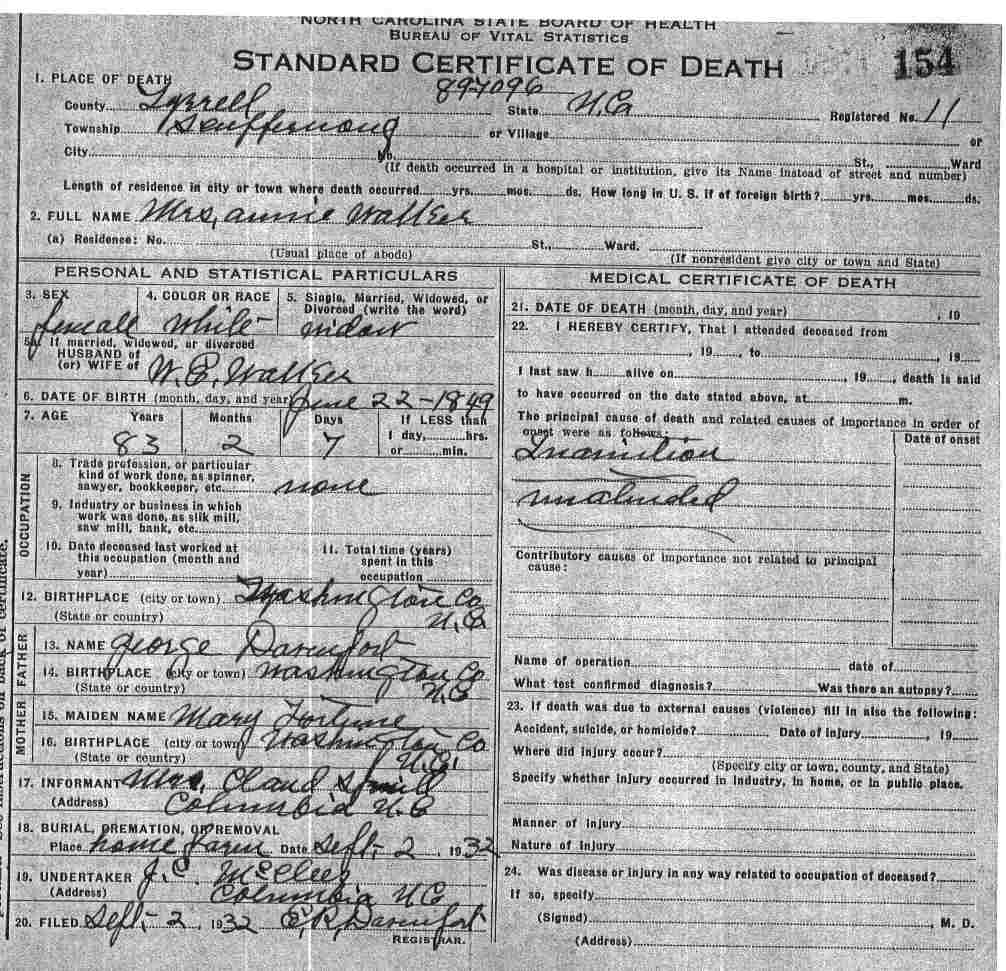 NORTH CAROLINA STATE BOARD OF HEALTH
BUREAU OF VITAL STATISTICS
STANDARD CERTIFICATE OF DEATH
154
1. PLACE OF DEATH
897096
County Tyrrell State N.Ca Registered No. 11
Township Scuppernong or Village or
City No. St., Ward
(If death occurred in a hospital or institution, give its Name instead of street and number)
Length of residence in city or town where death occurred yrs. mos. ds. How long in U. S. if of foreign birth? yrs. mos. ds.
2. FULL NAME Mrs, annie Walker
(a) Residence: No. St., Ward.
(Usual place of abode) (If nonresident give city or town and State)
PERSONAL AND STATISTICAL PARTICULARS
3. SEX 4. COLOR OR RACE 5. Single, Married, Widowed, or Divorced (write the word)
female white widow
5a. If married, widowed, or divorced
HUSBAND of
(or) WIFE of W. Walker
6. DATE OF BIRTH (month, day, and year) June 22-1849
7. AGE Years Months Days If LESS than
1 day, hrs.
83 2 7 or min.
OCCUPATION
8. Trade profession, or particular
kind of work done, as spinner,
sawyer, bookkeeper, etc. none
9. Industry or business in which
work was done, as silk mill,
saw mill, bank, etc.
10. Date deceased last worked at
this occupation (month and
year)
11. Total time (years)
spent in this
occupation
12. BIRTHPLACE (city or town) Washington Co
(State or country) N.Ca
FATHER
13. NAME George Davenport
14. BIRTHPLACE (city or town) Washington Co
(State or country) N.C
MOTHER
15. MAIDEN NAME Mary Fortune
16. BIRTHPLACE (city or town) Washington Co
(State or country) N.C.
17. INFORMANT Mrs. Claud Spruill
(Address) Columbia N.C
18. BURIAL, CREMATION, OR REMOVAL
Place home farm Date Sept, 2, 1932
19. UNDERTAKER J.C. McClees
(Address) Columbia N.C
20. FILED Sept, 2 1932 E.R, Davenport
REGISTRAR.
MEDICAL CERTIFICATE OF DEATH
21. DATE OF DEATH (month, day, and year) , 19
22. I HEREBY CERTIFY, That I attended deceased from
, 19 , to , 19
I last saw h alive on , 19 , death is said
to have occurred on the date stated above, at m.
The principal cause of death and related causes of importance in order of
onset were as follows: Date of onset
Contributory causes of importance not related to principal
cause:
Name of operation date of
What test confirmed diagnosis? Was there an autopsy?
23. If death was due to external causes (violence) fill in also the following:
Accident, suicide, or homicide? Date of injury , 19
Where did injury occur?
(Specify city or town, county, and State)
Specify whether injury occurred in industry, in home, or in public place.
Manner of injury
Nature of injury
24. Was disease or injury in any way related to occupation of deceased?
If so, specify
(Signed) , M. D.
(Address)